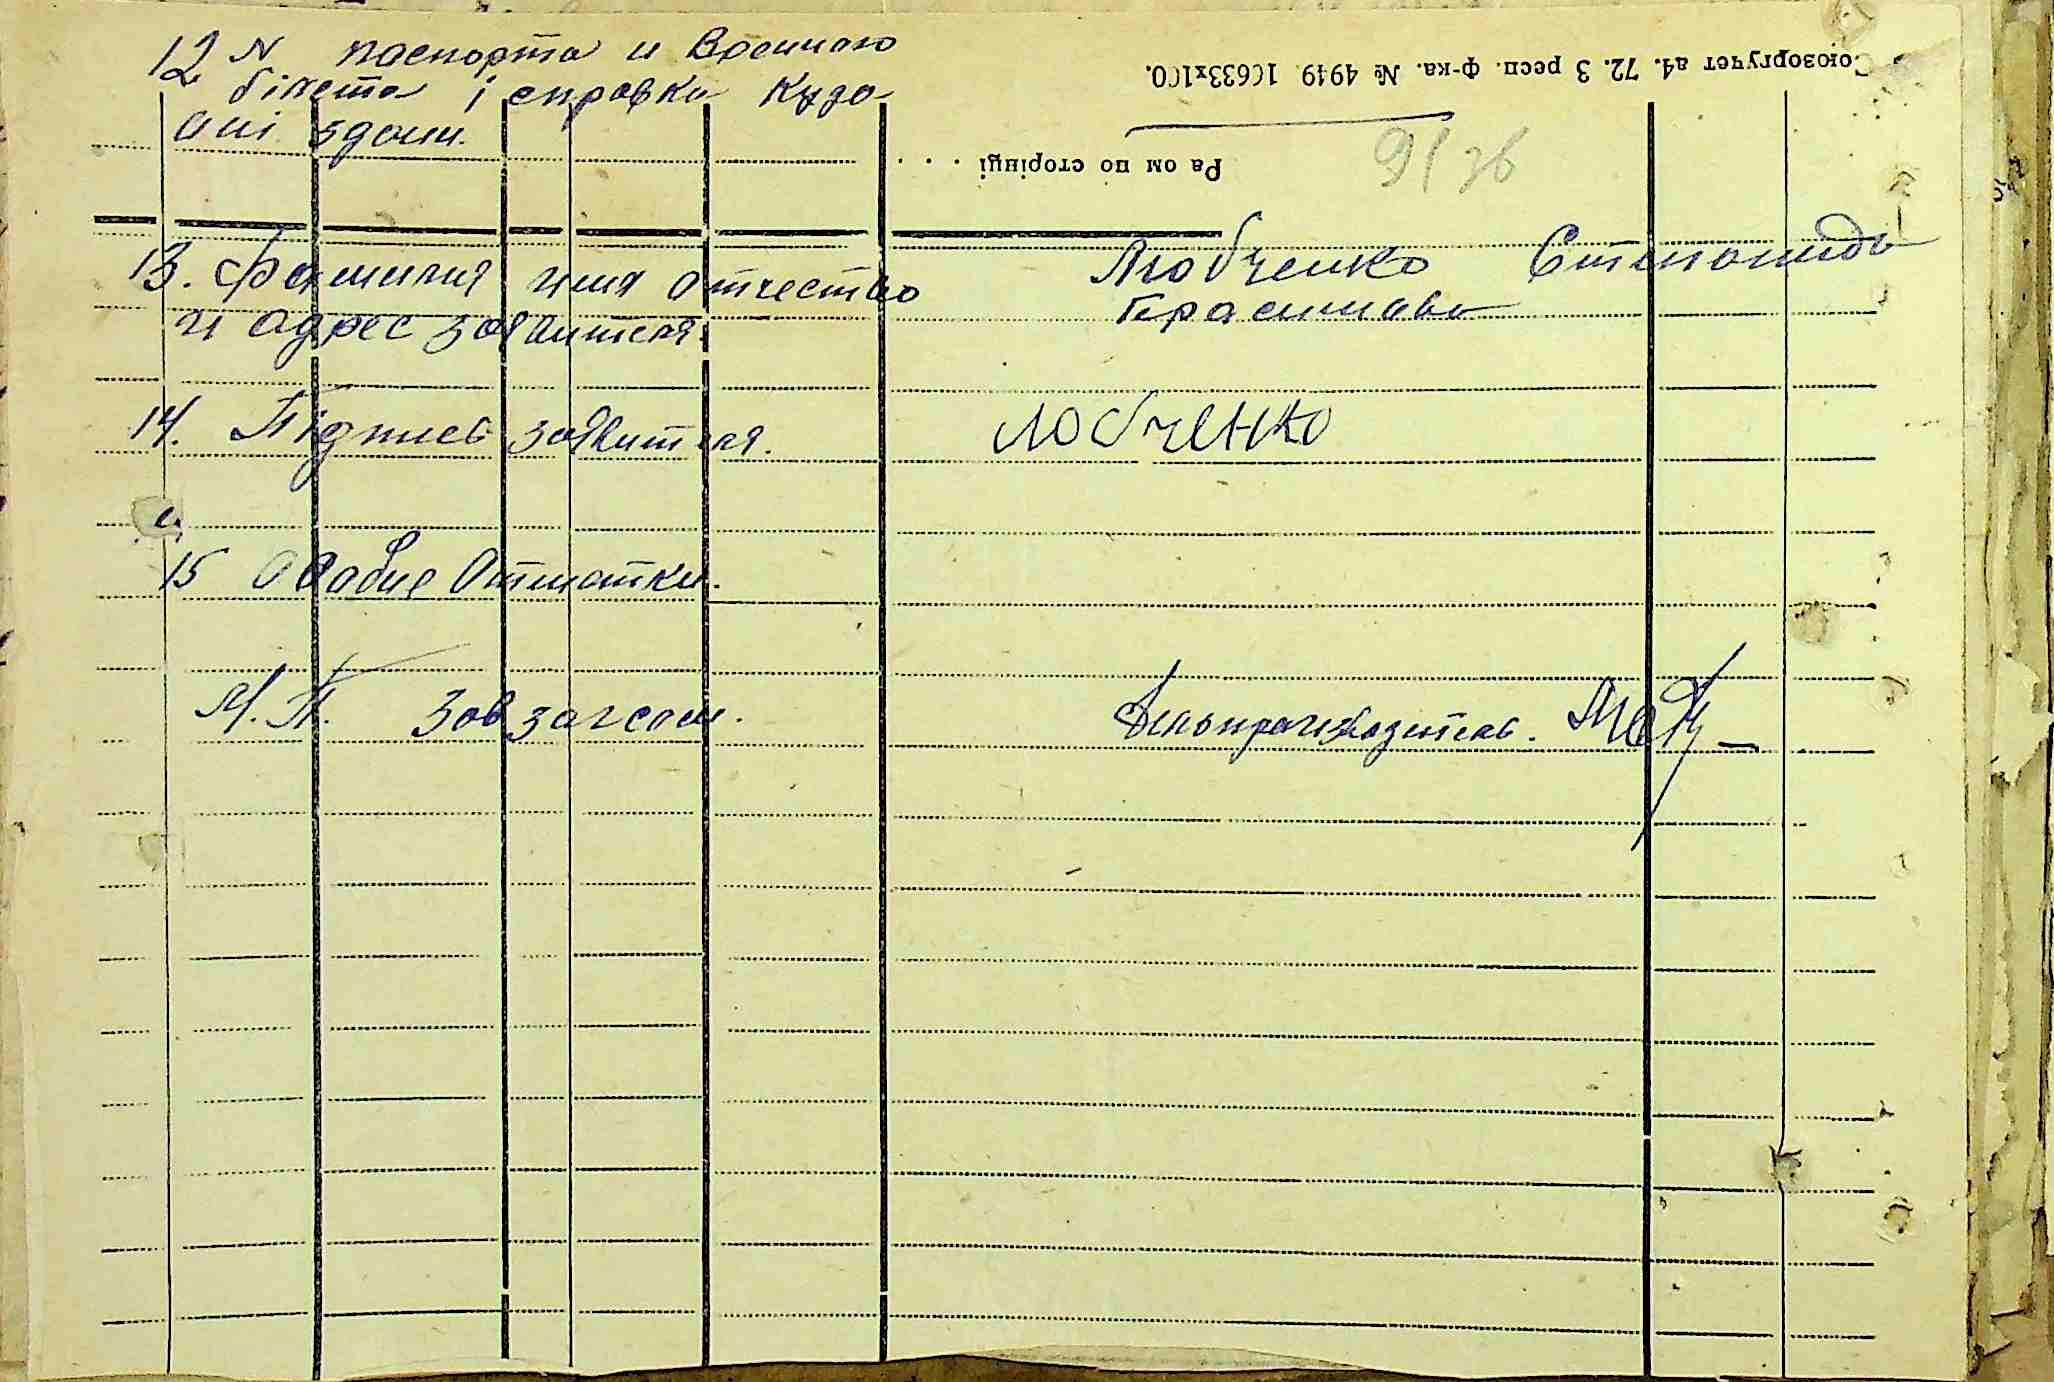 12 N паспорта и Военного
білета і справки куда
ані здани.
Союзоргучет д4. 72. 3 респ. ф-ка. № 4949 10633х100.
Разом по сторінці . . .
13. Фамилия имя отчество
и адрес заявителя.
Любченко Степанида
Герасимовн
14. Підпись заявителя.
Любченко
15 Особие Отметки.
М.П. Зав загсом.
Делопроизводитель.